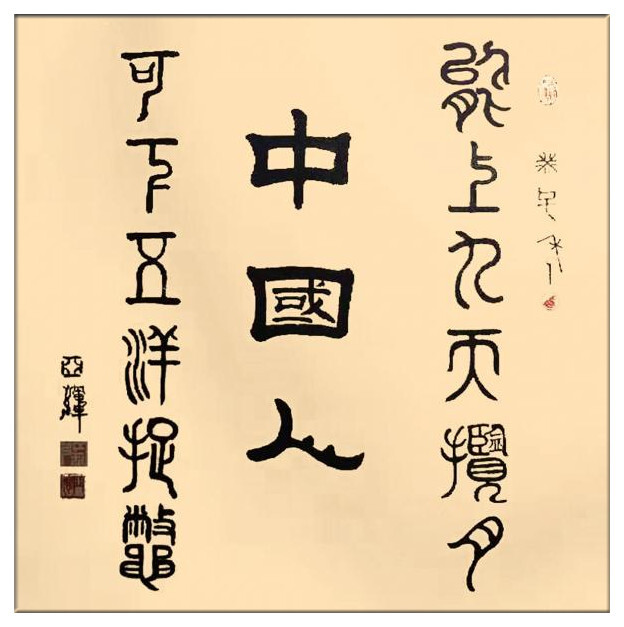 能上九天攬月
中國人
可下五洋捉鼈
亞輝